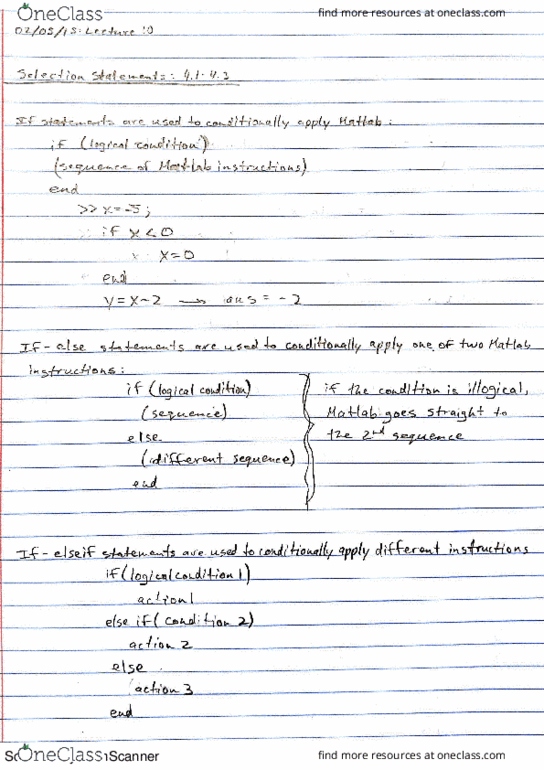 OneClass find more resources at oneclass.com
02/05/15: Lecture 10
Selection Statements: 4.1-4.3
If statements are used to conditionally apply Matlab:
if (logical condition)
(sequence of Matlab instructions)
end
>> x=-5;
if x<0
x=0
end
y=x-2 → ans = -2
If-else statements are used to conditionally apply one of two Matlab
instructions:
if (logical condition)
(sequence)
else
(different sequence)
end
if the condition is illogical,
Matlab goes straight to
the 2nd sequence
If-elseif statements are used to conditionally apply different instructions
if (logical condition 1)
action 1
else if (condition 2)
action 2
else
action 3
end
OneClass Scanner find more resources at oneclass.com